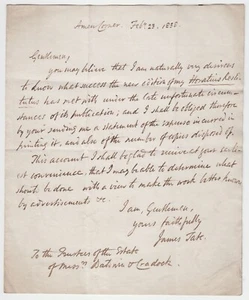 Amen Corner. Feb. 23. 1838.
Gentlemen,
you may believe that I am naturally very desirous
to know what success the new edition of my Horatius Resti-
tutus has met with under the late unfortunate circum-
stances of its publication; and I shall be obliged therefore
by your sending me a statement of the expense incurred in
printing it, and also of the number of copies disposed of.
This account I shall be glad to receive at your earli-
est convenience, that I may be able to determine what
should be done with a view to make the work better known
by advertisements &c.
I am, Gentlemen,
yours faithfully
James Tate.
To the Trustees of the Estate
of Messrs. Baldwin & Cradock.